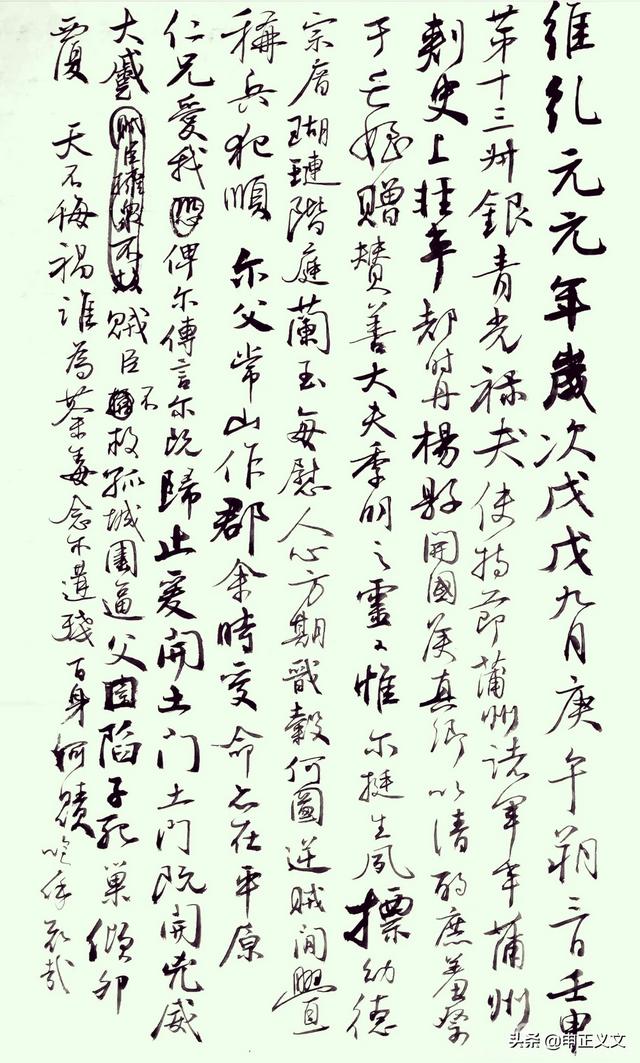 維乹元元年歲次戊戌九月庚午朔三日壬申
苐十三叔銀青光禄夫使持節蒲州諸軍事蒲州
刺史上輕車都尉丹楊縣開國侯真卿以清酌庶羞祭
于亡姪贈賛善大夫季明之靈曰惟尔挺生夙標幼德
宗廟瑚璉階庭蘭玉每慰人心方期戩榖何圖逆賊間舋
稱兵犯順尔父常山作郡余時受命亦在平原
仁兄愛我恐俾尔傳言尔既歸止爰開土门土门既開兇威
大蹙賊臣擁衆不救賊臣不救孤城圍逼父陷子死巢傾卵
覆天不悔禍誰為荼毒念尔遘殘百身何贖嗚乎哀哉
头条 @明正义文